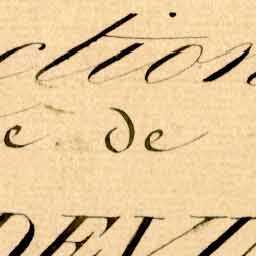 ction
e de
DEVI